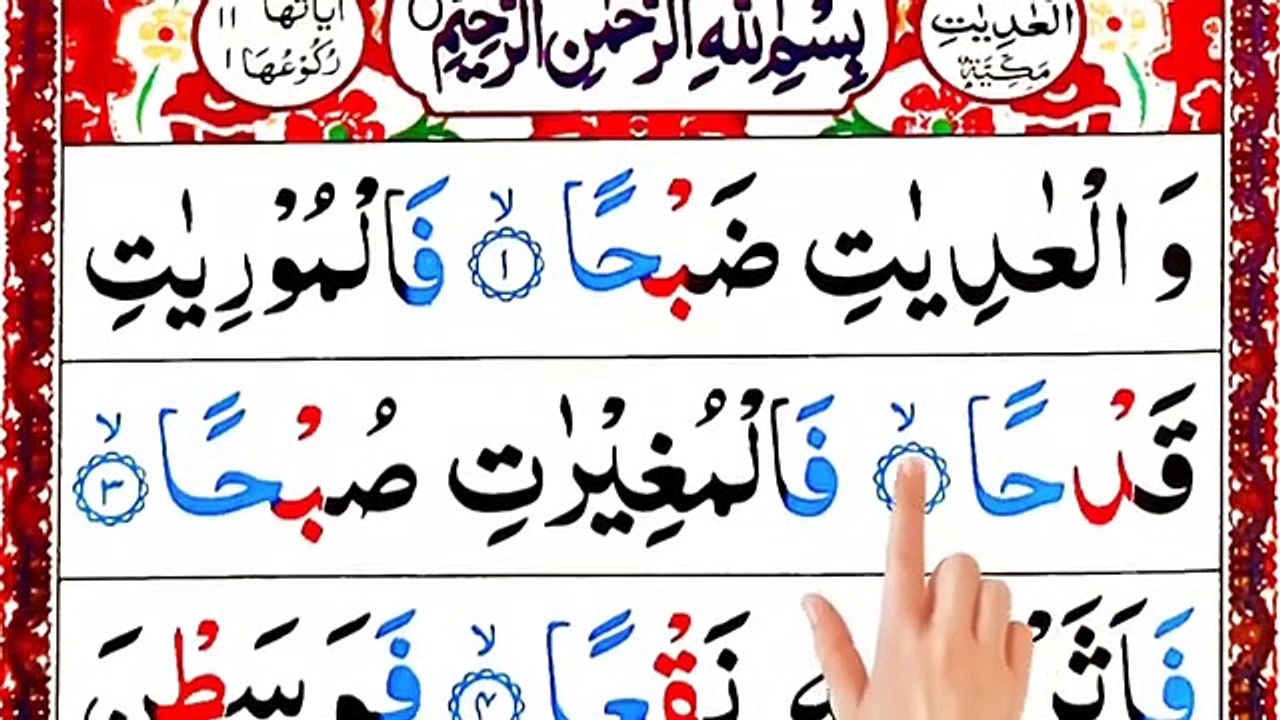 العٰدِيٰتِ
مَكِّيَّةٌ
بِسْمِ اللّٰهِ الرَّحْمٰنِ الرَّحِيْمِ
اٰيَاتُهَا ١١
رُكُوْعُهَا ١
وَ الْعٰدِيٰتِ ضَبْحًا ۙ ١ فَالْمُوْرِيٰتِ
قَدْحًا ۙ فَالْمُغِيْرٰتِ صُبْحًا ۙ ٣
نَقْعًا ۙ ۴ فَوَسَطْنَ